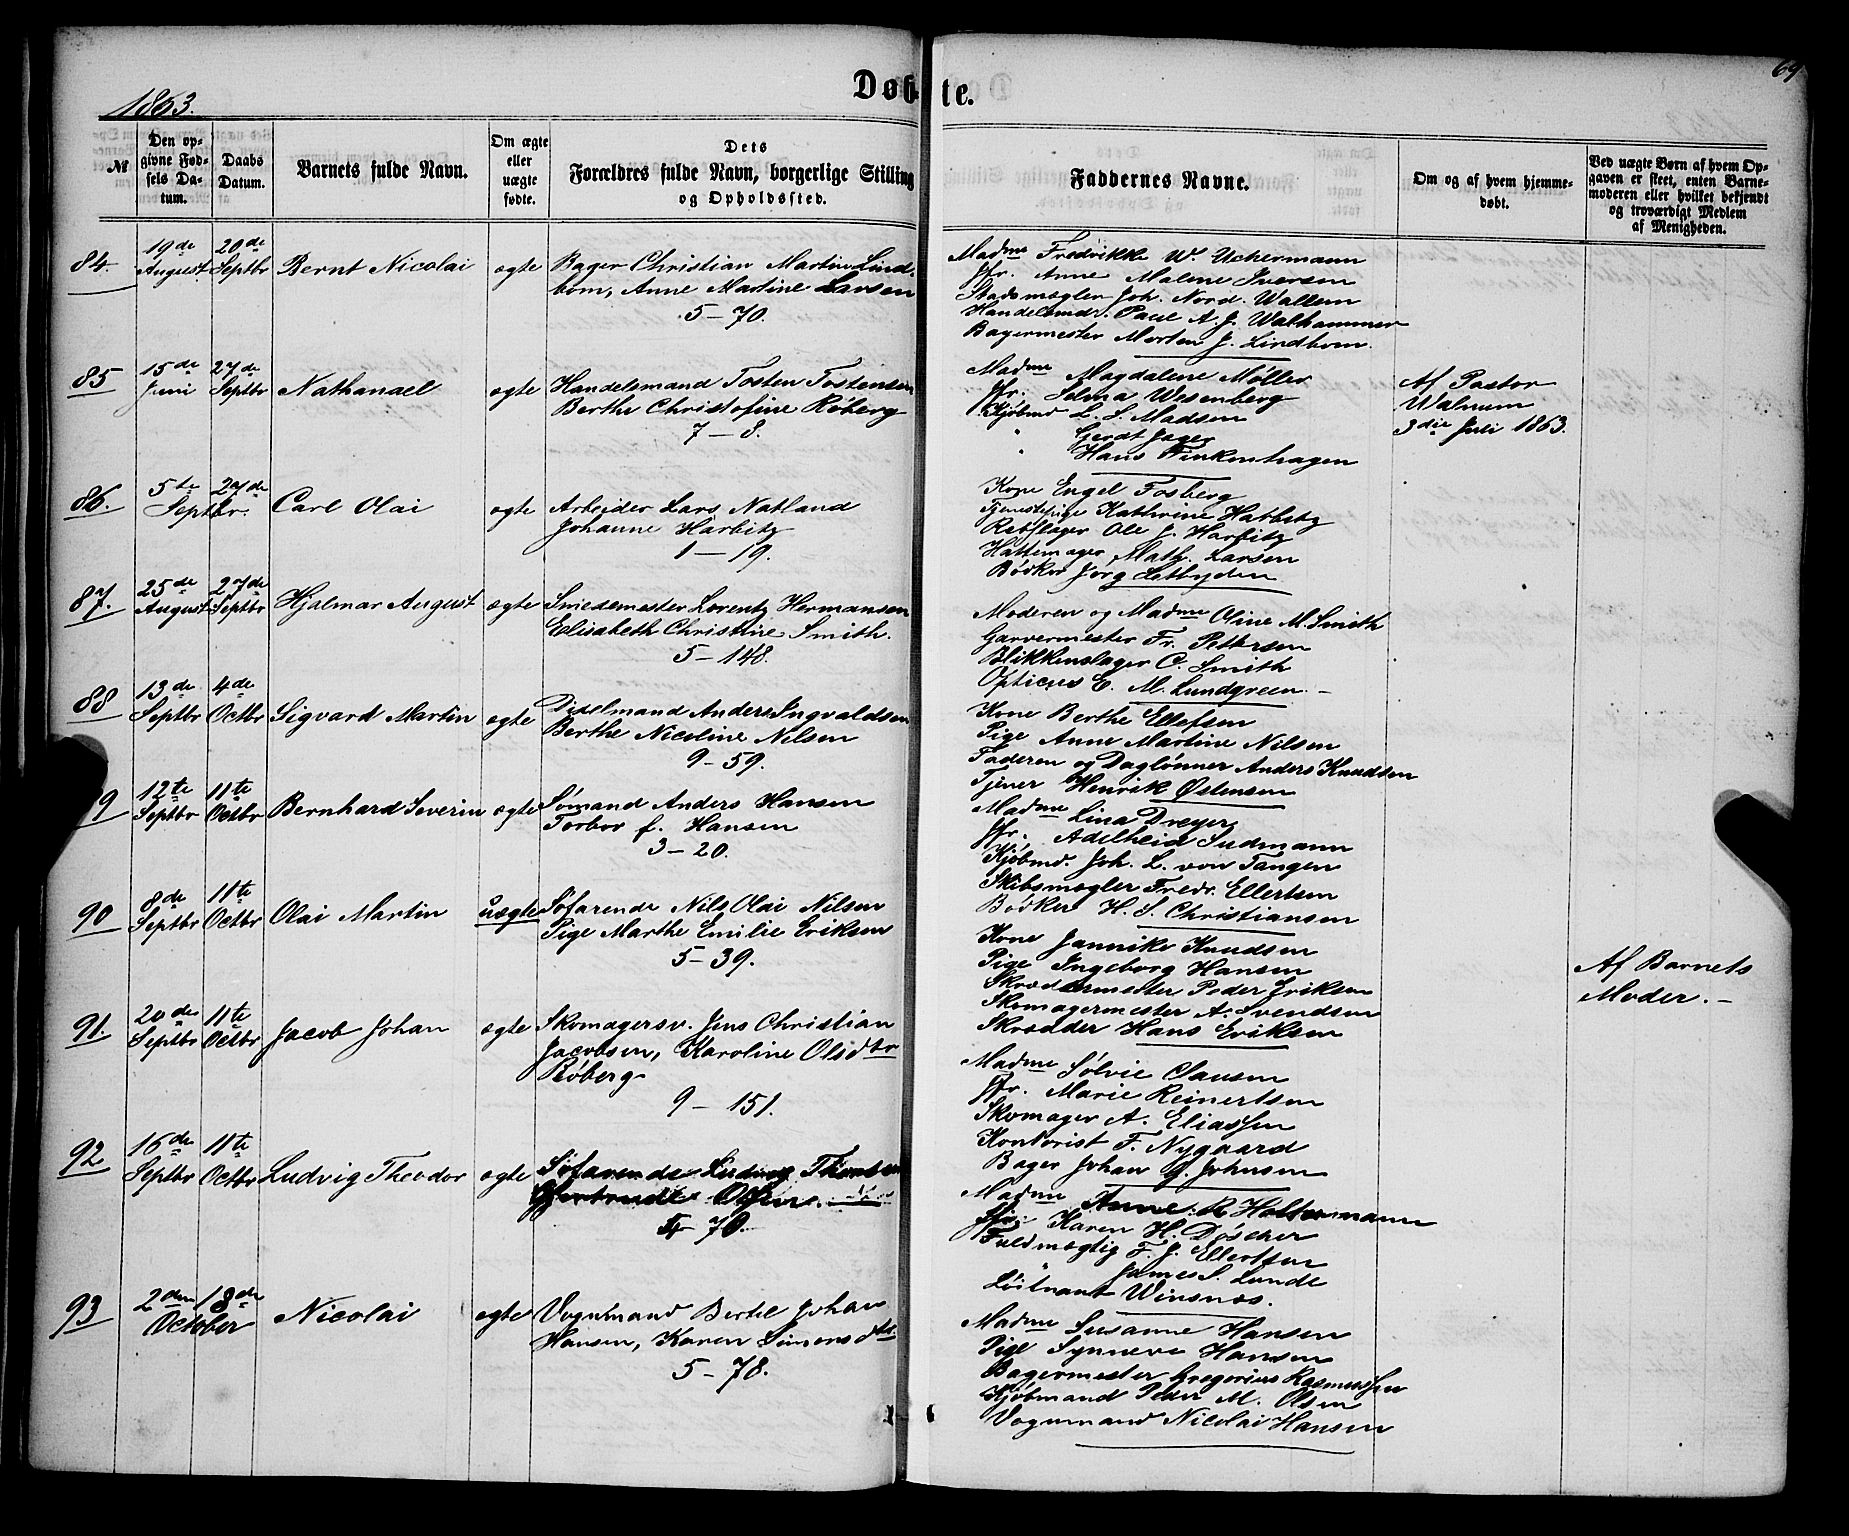 1863.
Døbte.
69
№
Den op-
givne Fød-
sels Da-
tum.
Daabs
Datum.
Barnets fulde Navn.
Om ægte
eller
uægte
fødte.
Dets
Forældres fulde Navn, borgerlige Stilling
og Opholdssted.
Faddernes Navne.
Om og af hvem hjemme-
døbt.
Ved uægte Børn af hvem Op-
gaven er skeet, enten Barne-
moderen eller hvilket bekjendt
og troværdigt Medlem
af Menigheden.
84
19de August
20de Septbr
Bernt Nicolai
ægte
Bager Christian Martin Lind-
bom, Anne Martine Larsen
5-70.
Madme Fredrikke W. Uchermann
Jfr. Anne Malene Iversen
Stadsmægler Joh. Nord. Wallem
Handelsmd. Paul A. J. Walhammer
Bagermester Morten J. Lindbom.
85
15de Juni
27de Septbr
Nathanael
ægte
Handelsmand Tosten Tostensen
Berthe Christofine Røberg
7-8.
Madme Magdalene Møller
Jfr. Selma Wesenberg
Kjøbmd L. S. Madsen
" Gerdt Jager
Hans Finkenhagen
Af Pastor
Walnum
3die Juli 1863.
86.
5te 27de
Septbr.
Carl Olai
ægte
Arbeider Lars Natland
Johanne Harbitz
1-19.
Kone Engel Fosberg
Tjenestepige Kathrine
Rebslager Ole J. Harbitz
Hattemager Math. Larsen
Bødker Jørg
87.
25de August
27de Septbr
Hjalmar August
ægte
Smedemester Lorentz Hermansen
Elisabeth Christine Smith.
5-148.
Moderen og Madme Oline M. Smith
Garvermester Fr. Pettersen
Blikkenslager C. Smith
Opticus E. M. Lundgreen.-
88
13de Septbr
4de Octbr
Sigvard Martin
ægte
Anders Ingvaldsen
Berthe Nicoline Nilsen
9-59.
Kone Berthe Ellefsen
Pige Anne Martine Nilsen
Faderen og Daglønner Anders Knudsen
Tjener Henrik Østensen
9
12te Septbr
11te Octbr
Bernhard Severin
ægte
Sømand Anders Hansen
Torbor f. Hansen
3-20.
Madme Lina Dreyer
Jfr. Adelheid Sudmann
Kjøbmd. Joh. L. von Tangen
Skibsmægler Fredr. Ellertsen
Bødker H. S. Christiansen
90
8de Septbr
11te Octbr
Olai Martin
uægte
Søfarende Nils Olai Nilsen
Pige Marthe Emilie Eriksen
5-39.
Kone Jannike Knudsen
Pige Ingeborg Hansen
Skræddermester Peder Eriksen
Skomagermester A. Svendsen
Skrædder Hans Eriksen
Af Barnets
Moder.-
91.
20de Septbr
11te Octbr
Jacob Johan
ægte
Skomagersv. Jens Christian
Jacobsen, Karoline Olsdtr
Røberg
9-151.
Madme Sølvie Clausen
Jfr. Marie Reinertsen
Skomager A. Eliassen
Kontorist F. Nygaard
Bager Johan G. Johnsen
92
16de Septbr
11te Octbr
Ludvig Theodor
ægte
Søfarende Ludvig
Gjertrude
70.
Madme Anne R Holtermann
Jfr. Karen H. Døscher
Fuldmægtig F. J. Ellertsen
" James S. Lunde
Løitnant Winsnes.
93
2den 18de
October
Nicolai
ægte
Vognmand Bertel Johan
Hansen, Karen Simonsdtr
5-78.
Madme Susanne Hansen
Pige Synneve Hansen
Bagermester Gregorius Rasmussen
Kjøbmand Peder M. Olsen
Vognmand Nicolai Hansen